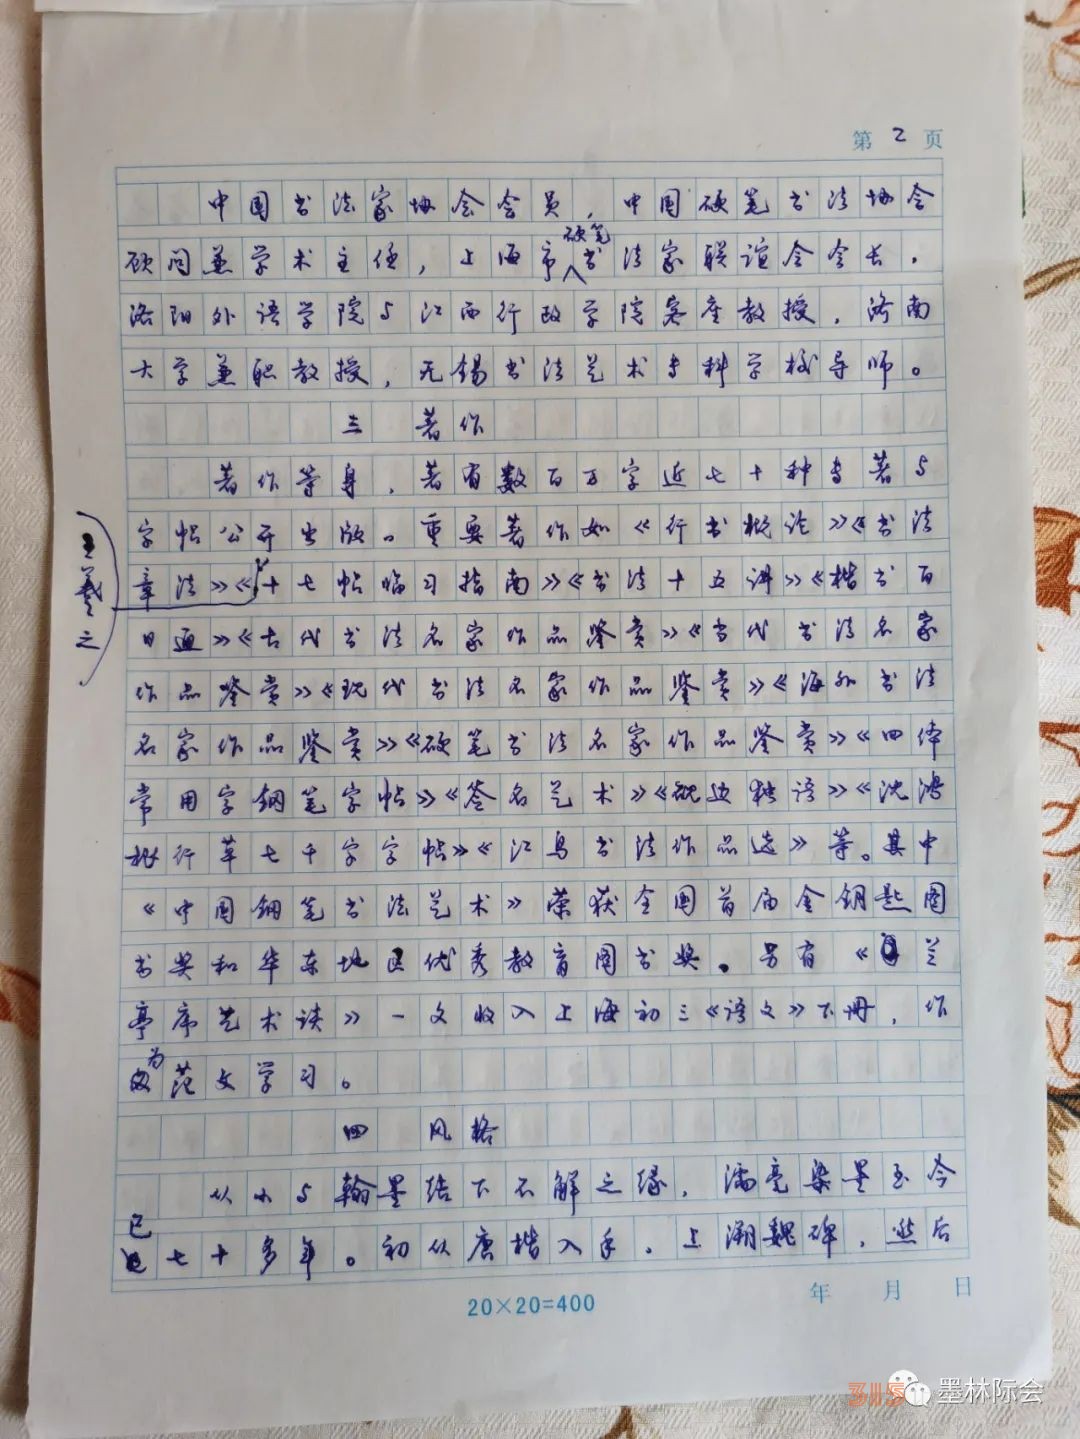 第2页
中国书法家协会会员，中国硬笔书法协会
顾问兼学术主任，上海市硬笔书法家联谊会会长，
洛阳外语学院与江西行政学院客座教授，济南
大学兼职教授，无锡书法艺术专科学校导师。
三 著作
著作等身，著有数百万字近七十种专著与
字帖公开出版。重要著作如《行书概论》《书法
章法》《王羲之十七帖临习指南》《书法十五讲》《楷书百
日通》《古代书法名家作品鉴赏》《当代书法名家
作品鉴赏》《现代书法名家作品鉴赏》《海外书法
名家作品鉴赏》《硬笔书法名家作品鉴赏》《四体
常用字钢笔字帖》《签名艺术》《砚边独语》《沈鸿
根行草七千字字帖》《江鸟书法作品选》等。其中
《中国钢笔书法艺术》荣获全国首届金钥匙图
书奖和华东地区优秀教育图书奖。另有《兰
亭序艺术谈》一文收入上海初三《语文》下册，作
为范文学习。
四 风格
从小与翰墨结下不解之缘，濡毫染墨至今
已七十多年。初从唐楷入手，上溯魏碑，然后
20×20=400
年 月 日
315
墨林际会